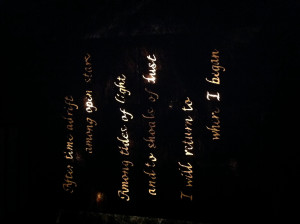 After time adrift
among open stars
Among tides of light
and to shoals of dust
I will return to
where I began